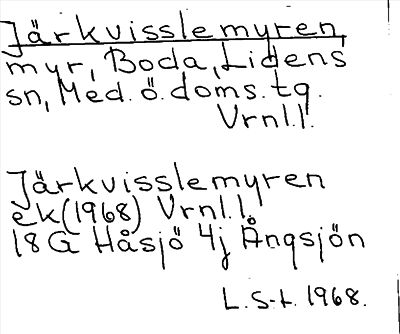 Järkvisslemyren,
myr, Boda, Lidens
sn, Med. ö. doms. tg.
Vrnl.l.
Järkvisslemyren
ek (1968) Vrnl.l.
18G Håsjö 4j Ängsjön
L. S-t. 1968.